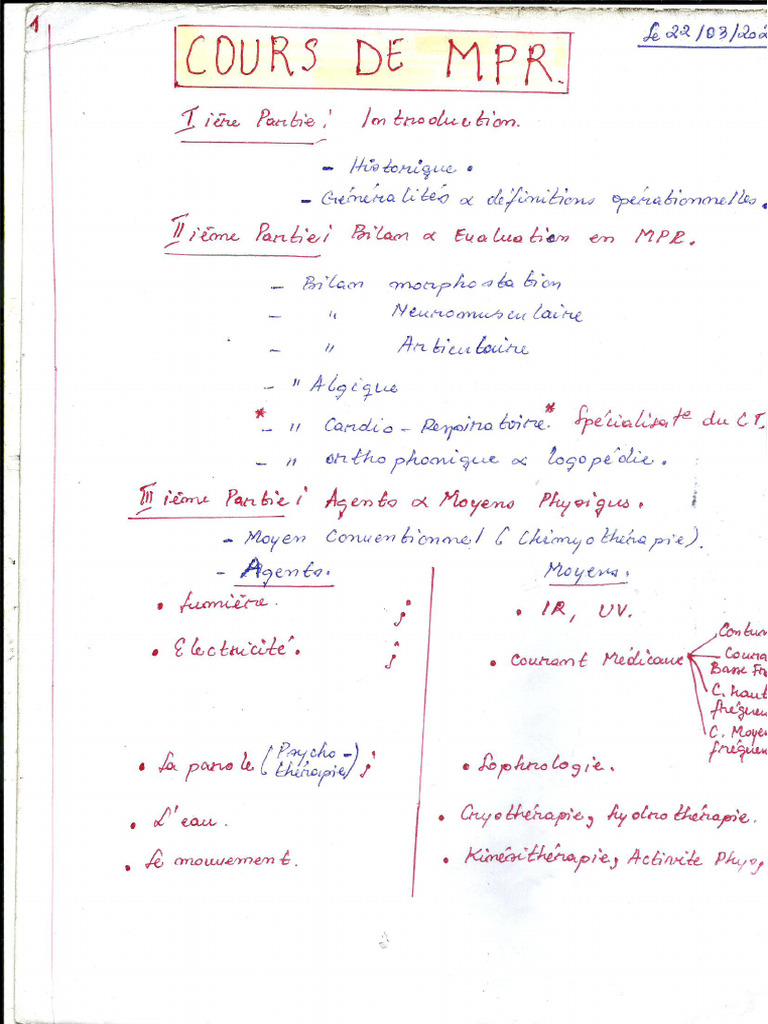 1
Le 22/03/202
COURS DE MPR.
I ière Partie : Introduction.
- Historique.
- Généralités & définitions opérationnelles.
II ième Partie : Bilan & Evaluation en MPR.
- Bilan morphostation
- " Neuromusculaire
- " Articulaire
- " Algique
* - " Cardio-Respiratoire. * Spécialisat° du CT.
- " orthophonique & logopédie.
III ième Partie : Agents & Moyens Physiqus.
- Moyen Conventionnel (Chimyothérapie).
- Agents. Moyens.
• Lumière. ; • IR, UV.
• Electricité. ; • Courant Médicaux
Contun
Coura
Basse Fré
C. haut
fréquen
C. Moyen
fréquen
• La parole (Psycho-thérapie) ; • Sophrologie.
• L'eau. • Cryothérapie, hydrothérapie.
• Le mouvement. • Kinésithérapie, Activite Phys,